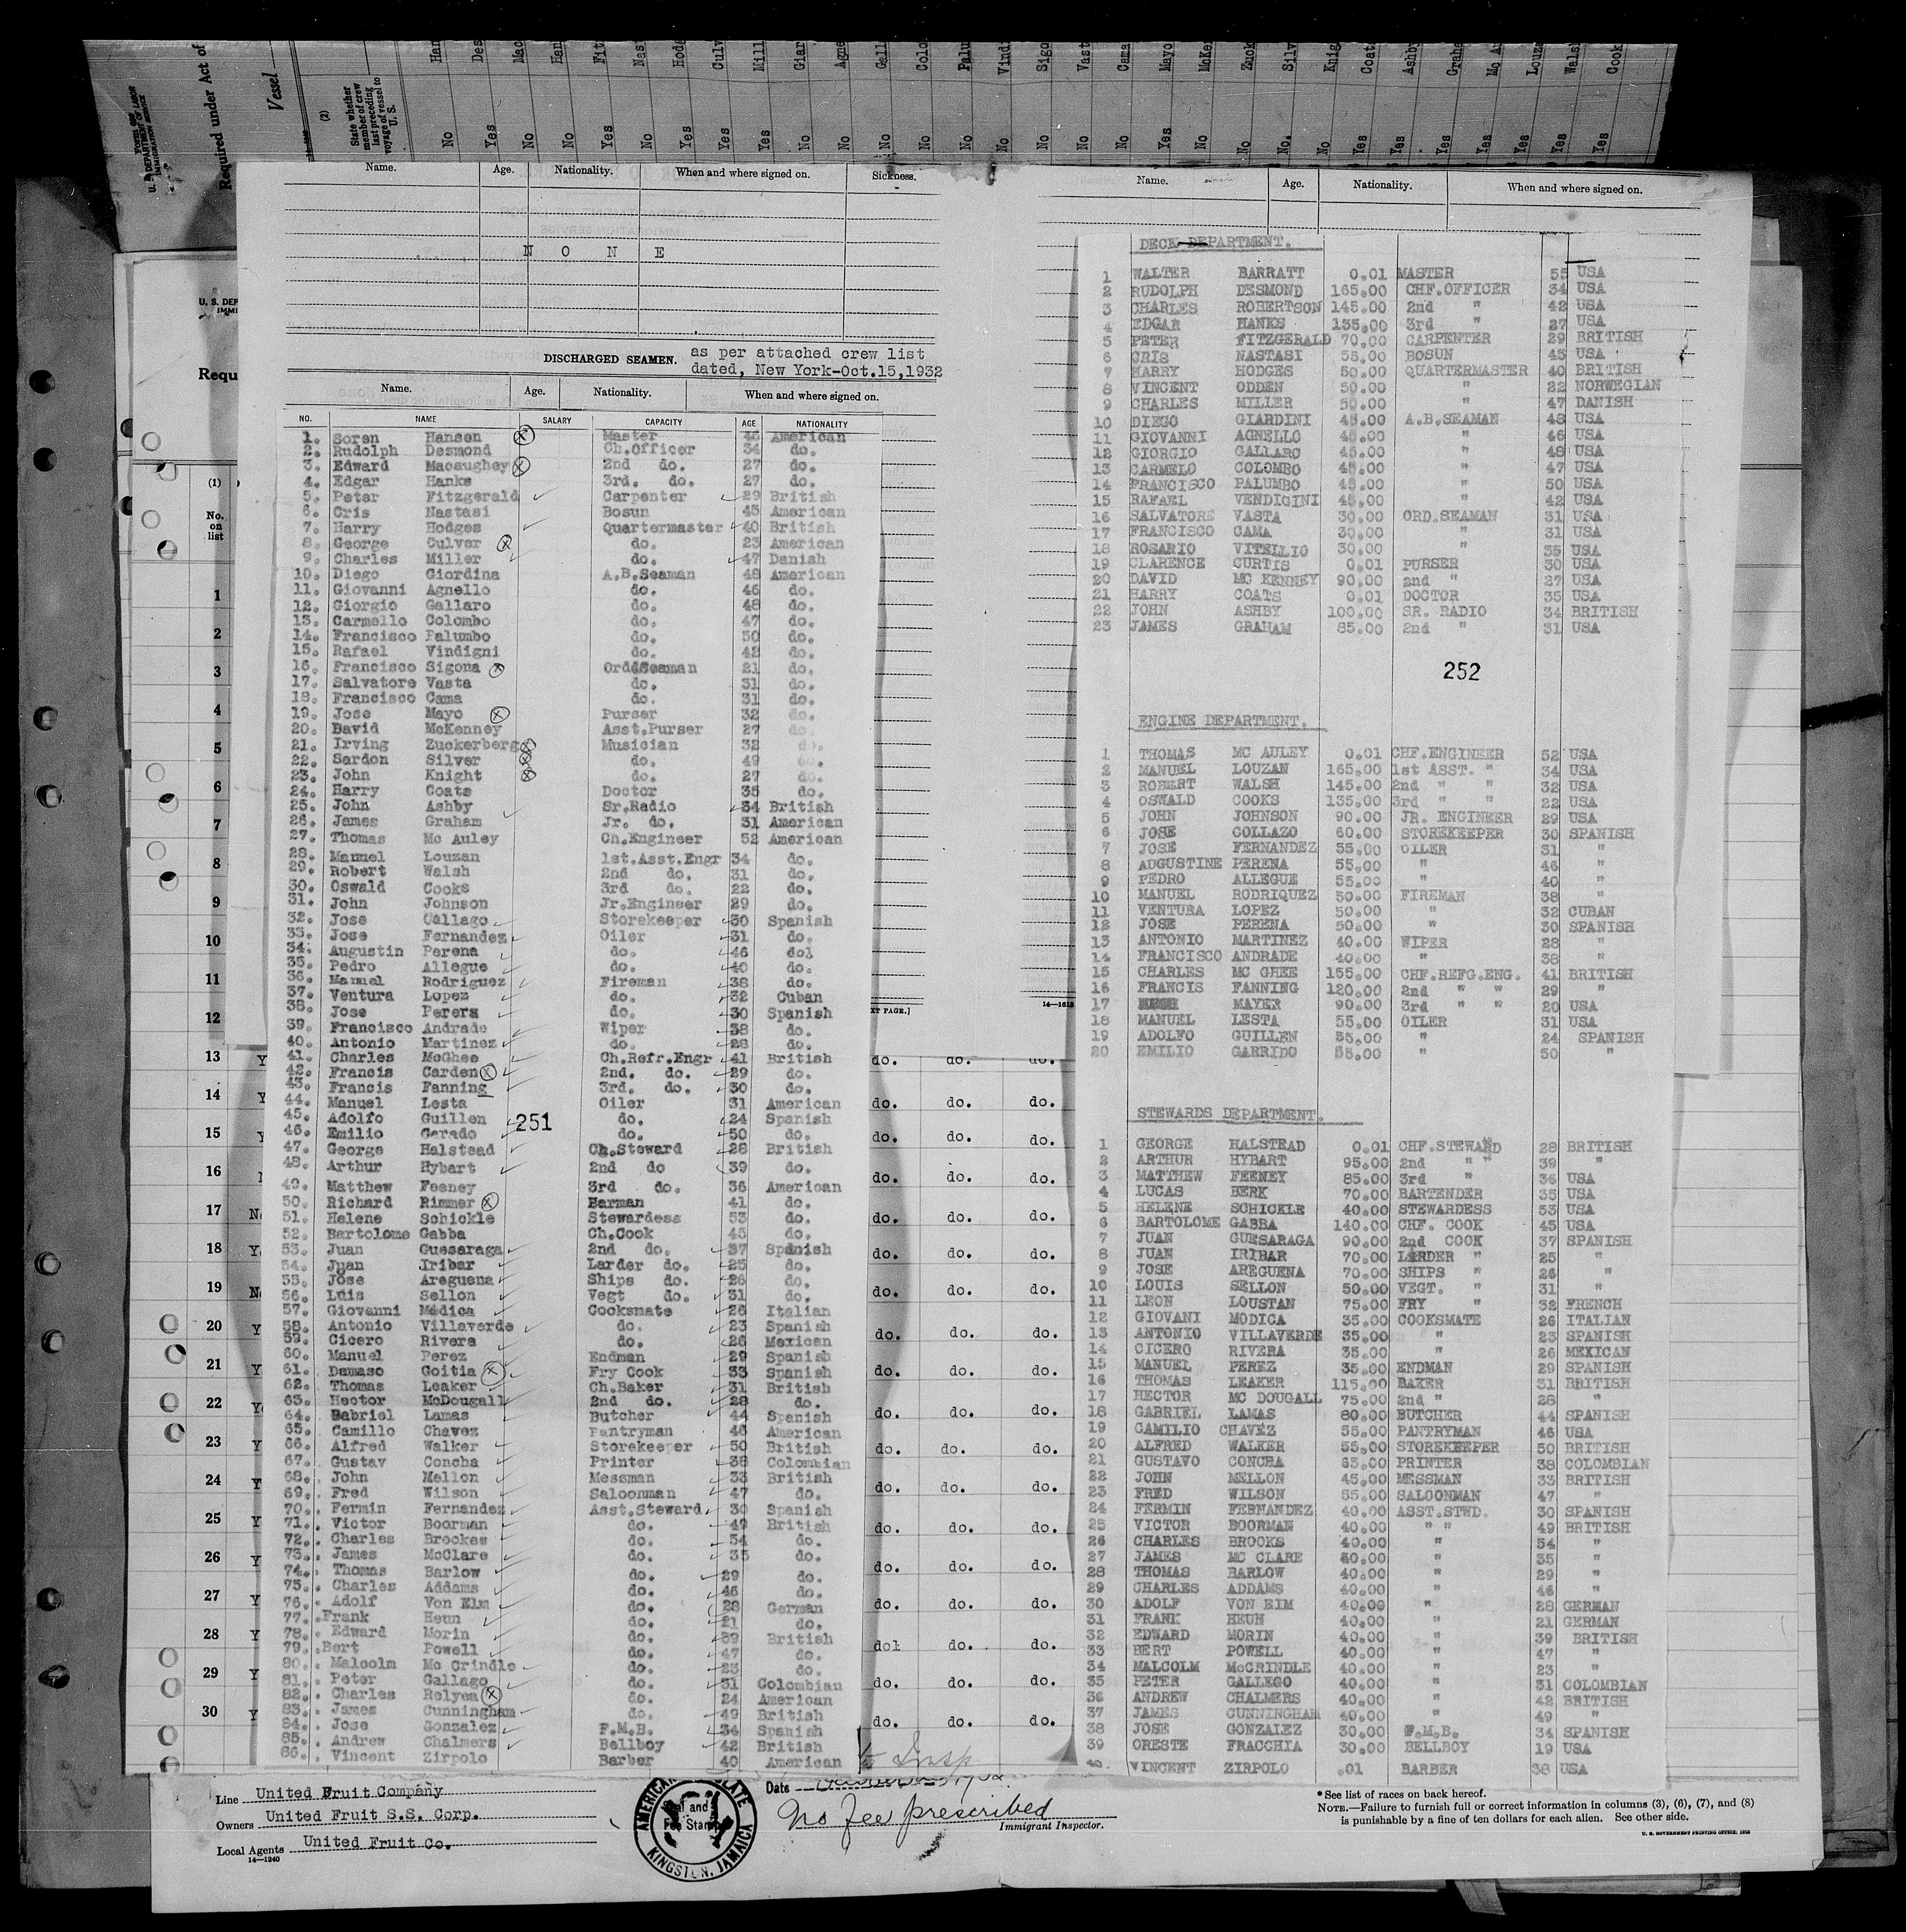 U. S. DEPARTMENT OF LABOR
IMMIGRATION SERVICE
Required under Act of
Vessel
(2)
State whether member of crew last preceding voyage of vessel to U. S.
No Yes No No Yes No Yes Yes Yes No No No No No No No No No Yes No No No. No Yes Yes Yes Yes Yes Yes Yes
Name. Age. Nationality. When and where signed on. Sickness.
N O N E
DISCHARGED SEAMEN. as per attached crew list
dated, New York-Oct.15,1932
Name. Age. Nationality. When and where signed on.
NO. NAME SALARY CAPACITY AGE NATIONALITY
1. Soren Hansen Master 45 American
2. Rudolph Desmond Ch.Officer 34 do.
3. Edward Macaughey 2nd do. 27 do.
4. Edgar Hanks 3rd. do. 27 do.
5. Peter Fitzgerald Carpenter 29 British
6. Cris Nastasi Bosun 45 American
7. Harry Hodges Quartermaster 40 British
8. George Culver do. 23 American
9. Charles Miller do. 47 Danish
10. Diego Giordina A.B.Seaman 48 American
11. Giovanni Agnello do. 46 do.
12. Giorgio Gallaro do. 48 do.
13. Carmello Colombo do. 47 do.
14. Francisco Palumbo do. 50 do.
15. Rafael Vindigni do. 42 do.
16. Francisco Sigona OrddSeaman 21 do.
17. Salvatore Vasta do. 31 do.
18. Francisco Cama do. 31 do.
19. Jose Mayo Purser 32 do.
20. David McKenney Asst.Purser 27 do.
21. Irving Zuckerberg Musician 32 do.
22. Sardon Silver do. 49 do.
23. John Knight do. 27 do.
24. Harry Coats Doctor 35 do.
25. John Ashby Sr.Radio 34 British
26. James Graham Jr. do. 31 American
27. Thomas Mc Auley Ch.Engineer 52 American
28. Manuel Louzan 1st.Asst.Engr 34 do.
29. Robert Walsh 2nd do. 31 do.
30. Oswald Cooks 3rd do. 22 do.
31. John Johnson Jr.Engineer 29 do.
32. Jose Callago Storekeeper 30 Spanish
33. Jose Fernandez Oiler 31 do.
34. Augustin Perena do. 46 dol
35. Pedro Allegue do. 40 do.
36. Manuel Rodriguez Fireman 38 do.
37. Ventura Lopez do. 32 Cuban
38. Jose Perera do. 30 Spanish
39. Francisco Andrade Wiper 38 do.
40. Antonio Martinez do. 28 do.
41. Charles McGhee Ch.Refr.Engr 41 British
42. Francis Carden 2nd. do. 29 do.
43. Francis Fanning 3rd. do. 30 do.
44. Manuel Lesta Oiler 31 American
45. Adolfo Guillen do. 24 Spanish
251
46. Emilio Gerado do. 50 do.
47. George Halstead Ch.Steward 28 British
48. Arthur Hybart 2nd do 39 do.
49. Matthew Feeney 3rd do. 36 American
50. Richard Rimmer Barman 41 do.
51. Helene Schickle Stewardess 53 do.
52. Bartolome Gabba Ch.Cook 45 do.
53. Juan Guesaraga 2nd do. 37 Spanish
54. Juan Iribar Larder do. 25 do.
55. Jose Areguena Ships do. 26 do.
56. Luis Sellon Vegt do. 31 do.
57. Giovanni Modica Cooksmate 26 Italian
58. Antonio Villaverde do. 23 Spanish
59. Cicero Rivera do. 26 Mexican
60. Manuel Perez Endman 29 Spanish
61. Damaso Goitia Fry Cook 33 Spanish
62. Thomas Leaker Ch.Baker 31 British
63. Hector McDougall 2nd do. 28 do.
64. Gabriel Lamas Butcher 44 Spanish
65. Camillo Chavez Pantryman 46 American
66. Alfred Walker Storekeeper 50 British
67. Gustav Concha Printer 38 Colombian
68. John Mellon Messman 33 British
69. Fred Wilson Saloonman 47 do.
70. Fermin Fernandez Asst.Steward 30 Spanish
71. Victor Boorman do. 49 British
72. Charles Brookes do. 54 do.
73. James McClare do. 35 do.
74. Thomas Barlow do. 29 do.
75. Charles Addams do. 46 do.
76. Adolf Von Elm do. 28 German
77. Frank Heun do. 21 do.
78. Edward Morin do. 39 British
79. Bert Powell do. 47 do.
80. Malcolm Mc Crindle do. 23 do.
81. Peter Gallago do. 31 Colombian
82. Charles Relyea do. 24 American
83. James Cunningham do. 49 British
84. Jose Gonzalez F.M.B. 34 Spanish
85. Andrew Chalmers Bellboy 42 British
86. Vincent Zirpolo Barber 40 American
Name. Age. Nationality. When and where signed on.
DECK DEPARTMENT.
1 WALTER BARRATT 0.01 MASTER 55 USA
2 RUDOLPH DESMOND 165.00 CHF.OFFICER 34 USA
3 CHARLES ROBERTSON 145.00 2nd " 42 USA
4 EDGAR HANKS 135.00 3rd " 27 USA
5 PETER FITZGERALD 70.00 CARPENTER 29 BRITISH
6 CRIS NASTASI 55.00 BOSUN 45 USA
7 HARRY HODGES 50.00 QUARTERMASTER 40 BRITISH
8 VINCENT ODDEN 50.00 " 22 NORWEGIAN
9 CHARLES MILLER 50.00 " 47 DANISH
10 DIEGO GIARDINI 45.00 A.B.SEAMAN 48 USA
11 GIOVANNI AGNELLO 45.00 " 46 USA
12 GIORGIO GALLARO 45.00 " 48 USA
13 CARMELO COLOMBO 45.00 " 47 USA
14 FRANCISCO PALUMBO 45.00 " 50 USA
15 RAFAEL VENDIGINI 45.00 " 42 USA
16 SALVATORE VASTA 30.00 ORD.SEAMAN 31 USA
17 FRANCISCO CAMA 30.00 " 31 USA
18 ROSARIO VITELLIO 30.00 " 35 USA
19 CLARENCE CURTIS 0.01 PURSER 30 USA
20 DAVID MC KENNEY 90.00 2nd " 27 USA
21 HARRY COATS 0.01 DOCTOR 35 USA
22 JOHN ASHBY 100.00 SR. RADIO 34 BRITISH
23 JAMES GRAHAM 85.00 2nd " 31 USA
252
ENGINE DEPARTMENT.
1 THOMAS MC AULEY 0.01 CHF.ENGINEER 52 USA
2 MANUEL LOUZAN 165.00 1st ASST. " 34 USA
3 ROBERT WALSH 145.00 2nd " " 32 USA
4 OSWALD COOKS 135.00 3rd " " 22 USA
5 JOHN JOHNSON 90.00 JR. ENGINEER 29 USA
6 JOSE COLLAZO 60.00 STOREKEEPER 30 SPANISH
7 JOSE FERNANDEZ 55.00 OILER 31 "
8 ADGUSTINE PERENA 55.00 " 46 "
9 PEDRO ALLEGUE 55.00 " 40 "
10 MANUEL RODRIQUEZ 50.00 FIREMAN 38 "
11 VENTURA LOPEZ 50.00 " 32 CUBAN
12 JOSE PERENA 50.00 " 30 SPANISH
13 ANTONIO MARTINEZ 40.00 WIPER 28 "
14 FRANCISCO ANDRADE 40.00 " 38 "
15 CHARLES MC GHEE 155.00 CHF.REFG.ENG. 41 BRITISH
16 FRANCIS FANNING 120.00 2nd " " 29 "
17 MAYER 90.00 3rd " " 20 USA
18 MANUEL LESTA 55.00 OILER 31 USA
19 ADOLFO GUILLEN 55.00 " 24 SPANISH
20 EMILIO GARRIDO 55.00 " 50 "
STEWARDS DEPARTMENT.
1 GEORGE HALSTEAD 0.01 CHF.STEWARD 28 BRITISH
2 ARTHUR HYBART 95.00 2nd " 39 "
3 MATTHEW FEENEY 85.00 3rd " 36 USA
4 LUCAS BERK 70.00 BARTENDER 35 USA
5 HELENE SCHICKLE 40.00 STEWARDESS 53 USA
6 BARTOLOME GABBA 140.00 CHF. COOK 45 USA
7 JUAN GUESARAGA 90.00 2nd COOK 37 SPANISH
8 JUAN IRIBAR 70.00 LARDER " 25 "
9 JOSE AREGUENA 70.00 SHIPS " 26 "
10 LOUIS SELLON 50.00 VEGT. " 31 "
11 LEON LOUSTAN 75.00 FRY " 32 FRENCH
12 GIOVANI MODICA 35.00 COOKSMATE 26 ITALIAN
13 ANTONIO VILLAVERDE 35.00 " 23 SPANISH
14 CICERO RIVERA 35.00 " 26 MEXICAN
15 MANUEL PEREZ 35.00 ENDMAN 29 SPANISH
16 THOMAS LEAKER 115.00 BAKER 31 BRITISH
17 HECTOR MC DOUGALL 75.00 2nd " 28 "
18 GABRIEL LAMAS 80.00 BUTCHER 44 SPANISH
19 CAMILIO CHAVEZ 55.00 PANTRYMAN 46 USA
20 ALFRED WALKER 55.00 STOREKEEPER 50 BRITISH
21 GUSTAVO CONCHA 65.00 PRINTER 38 COLOMBIAN
22 JOHN MELLON 45.00 MESSMAN 33 BRITISH
23 FRED WILSON 55.00 SALOONMAN 47 "
24 FERMIN FERNANDEZ 40.00 ASST.STWD. 30 SPANISH
25 VICTOR BOORMAN 40.00 " " 49 BRITISH
26 CHARLES BROOKS 40.00 " 54 "
27 JAMES MC CLARE 40.00 " 35 "
28 THOMAS BARLOW 40.00 " 29 "
29 CHARLES ADDAMS 40.00 " 46 "
30 ADOLF VON EIM 40.00 " 28 GERMAN
31 FRANK HEUN 40.00 " 21 GERMAN
32 EDWARD MORIN 40.00 " 39 BRITISH
33 BERT POWELL 40.00 " 47 "
34 MALCOLM McCRINDLE 40.00 " 23 "
35 PETER GALLEGO 40.00 " 31 COLOMBIAN
36 ANDREW CHALMERS 40.00 " 42 BRITISH
37 JAMES CUNNINGHAM 40.00 " 49 "
38 JOSE GONZALEZ 30.00 F.M.B. 34 SPANISH
39 ORESTE FRACCHIA 30.00 BELLBOY 19 USA
40. VINCENT ZIRPOLO .01 BARBER 38 USA
Line United Fruit Company
Owners United Fruit S.S. Corp.
Local Agents United Fruit Co.
14—1240
KINGSTON, JAMAICA
Date
No fee prescribed
Immigrant Inspector.
* See list of races on back hereof.
NOTE.—Failure to furnish full or correct information in columns (3), (6), (7), and (8)
is punishable by a fine of ten dollars for each alien. See other side.